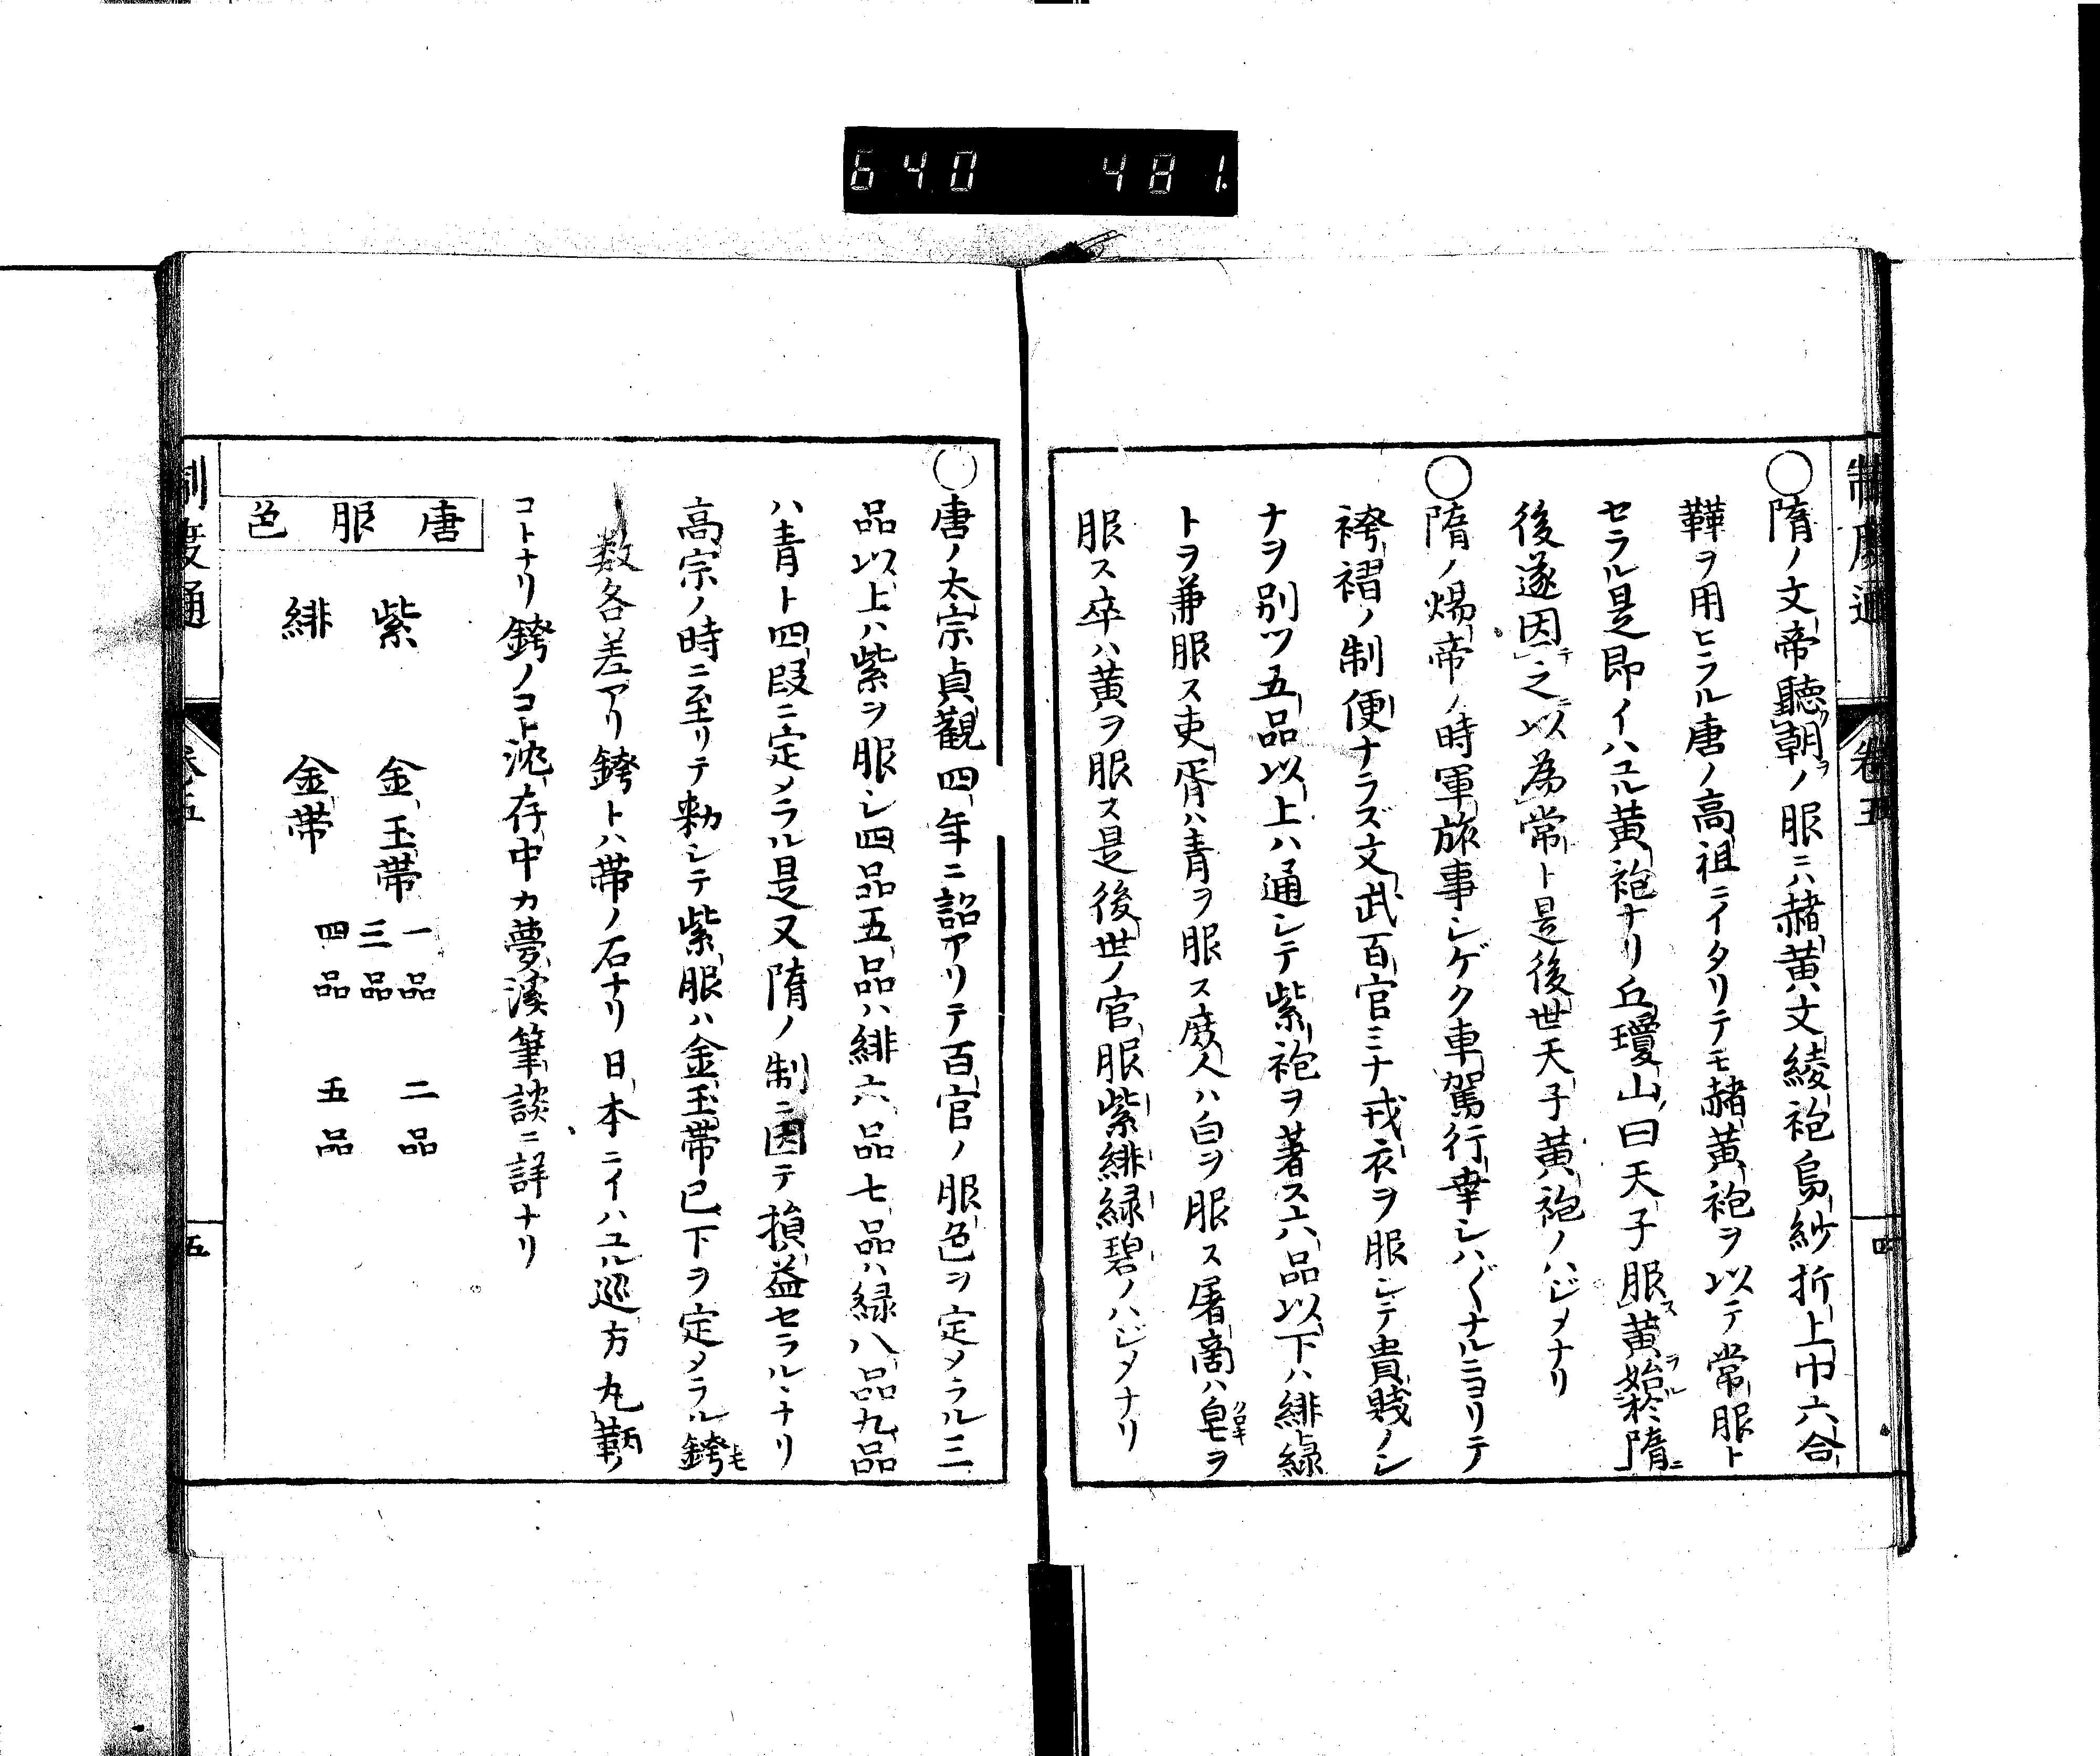 640 481
制度通 卷五 四
○隋ノ文帝聽朝ノ服ニハ赭黄文綾袍烏紗折上巾六合
鞾ヲ用ヒラル唐ノ高祖ニイタリテモ赭黄袍ヲ以テ常服ト
セラル是即イハユル黄袍ナリ丘瓊山曰天子服スル黄ヲ始ル於隋ニ
後遂因テ之ニ以為常ト是後世天子黄袍ノハジメナリ
○隋ノ煬帝ノ時軍旅事シゲク車駕行幸シハ〲ナルニヨリテ
袴褶ノ制便ナラズ文武百官ミナ戎衣ヲ服シテ貴賤ノシ
ナヲ別ツ五品以上ハ通シテ紫袍ヲ著ス六品以下ハ緋緑
トヲ兼服ス吏胥ハ青ヲ服ス庶人ハ白ヲ服ス屠商ハ皂クロキヲ
服ス卒ハ黄ヲ服ス是後世ノ官服紫緋緑碧ノハジメナリ
○唐ノ太宗貞観四年ニ詔アリテ百官ノ服色ヲ定メラル三
品以上ハ紫ヲ服シ四品五品ハ緋六品七品ハ緑八品九品
ハ青ト四段ニ定メラル是又隋ノ制ニ因テ損益セラルヽナリ
高宗ノ時ニ至リテ勅シテ紫服ハ金玉帯已下ヲ定メラル銙モ
数各差アリ銙トハ帯ノ石ナリ日本ニイハユル巡方丸鞆ノ
コトナリ銙ノコト沈存中カ夢溪筆談ニ詳ナリ
唐服色
紫 金玉帯 一品 二品
三品
緋 金帯 四品 五品
制度通 卷五 五